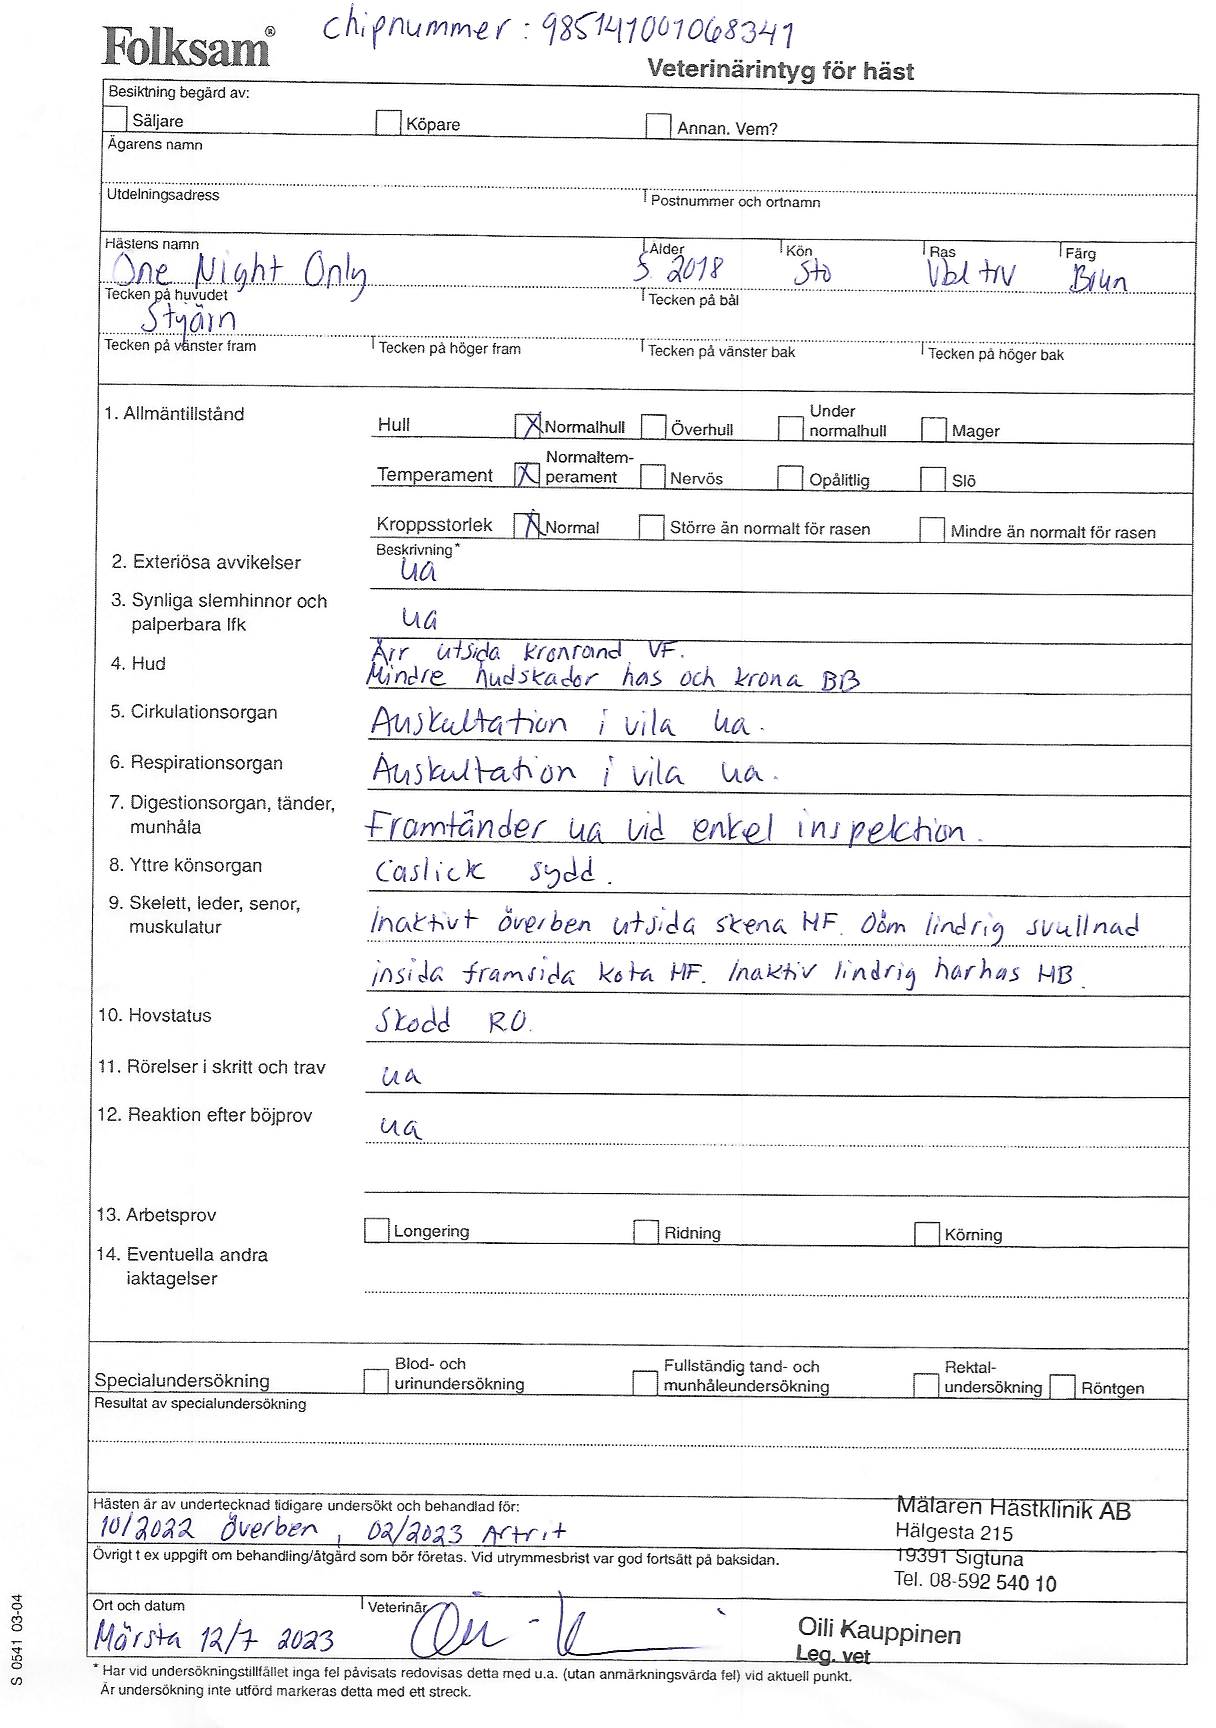 chipnummer: 985141001068341
Folksam®
Veterinärintyg för häst
Besiktning begärd av:
Säljare Köpare Annan. Vem?
Ägarens namn
Utdelningsadress Postnummer och ortnamn
Hästens namn Ålder Kön Ras Färg
One Night Only 5 2018 Sto Vbl trv Brun
Tecken på huvudet Tecken på bål
Stjärn
Tecken på vänster fram Tecken på höger fram Tecken på vänster bak Tecken på höger bak
1. Allmäntillstånd
Hull X Normalhull Överhull Under normalhull Mager
Temperament X Normaltem-perament Nervös Opålitlig Slö
Kroppsstorlek X Normal Större än normalt för rasen Mindre än normalt för rasen
Beskrivning*
2. Exteriösa avvikelser ua
3. Synliga slemhinnor och
palperbara lfk ua
4. Hud Ärr utsida kronrand VF.
Mindre hudskador has och krona BB
5. Cirkulationsorgan Auskultation i vila ua.
6. Respirationsorgan Auskultation i vila ua.
7. Digestionsorgan, tänder,
munhåla Framtänder ua vid enkel inspektion.
8. Yttre könsorgan Caslick sydd.
9. Skelett, leder, senor,
muskulatur Inaktivt överben utsida skena HF. Oöm lindrig svullnad
insida framsida kota HF. Inaktiv lindrig harhas HB.
10. Hovstatus Skodd RO.
11. Rörelser i skritt och trav ua
12. Reaktion efter böjprov ua
13. Arbetsprov Longering Ridning Körning
14. Eventuella andra
iaktagelser
Specialundersökning Blod- och urinundersökning Fullständig tand- och munhåleundersökning Rektal-undersökning Röntgen
Resultat av specialundersökning
Hästen är av undertecknad tidigare undersökt och behandlad för:
10/2022 överben, 02/2023 Artrit
Övrigt t ex uppgift om behandling/åtgärd som bör företas. Vid utrymmesbrist var god fortsätt på baksidan.
Mälaren Hästklinik AB
Hälgesta 215
19391 Sigtuna
Tel. 08-592 540 10
Ort och datum Veterinär
Märsta 12/7 2023
Oili Kauppinen
Leg. vet
* Har vid undersökningstillfället inga fel påvisats redovisas detta med u.a. (utan anmärkningsvärda fel) vid aktuell punkt.
Är undersökning inte utförd markeras detta med ett streck.
S 0541 03-04